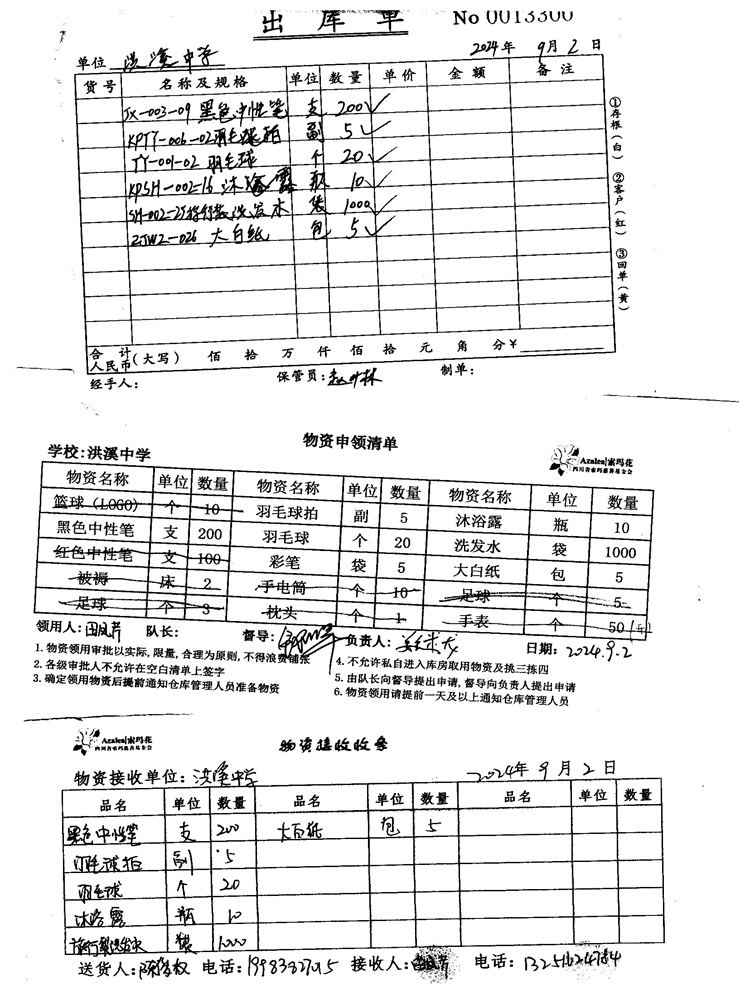 出 库 单 No 0013300
单位 洪溪中学 2024年 9月 2日
货号 名称及规格 单位 数量 单价 金额 备注
JX-003-09 黑色中性笔 支 200✓
KPTY-006-02羽毛球拍 副 5✓
TY-001-02 羽毛球 个 20✓
KPSH-002-16 沐浴露 瓶 10✓
SH-002-25旅行装洗发水 袋 1000✓
ZJWZ-026 大白纸 包 5✓
①存根(白) ②客户(红) ③回单(黄)
合计人民币(大写) 佰 拾 万 仟 佰 拾 元 角 分¥
经手人: 保管员: 制单:
物资申领清单
Azalea|索玛花
四川省索玛慈善基金会
学校:洪溪中学
物资名称 单位 数量 物资名称 单位 数量 物资名称 单位 数量
篮球(LOGO) 个 10 羽毛球拍 副 5 沐浴露 瓶 10
黑色中性笔 支 200 羽毛球 个 20 洗发水 袋 1000
红色中性笔 支 100 彩笔 袋 5 大白纸 包 5
被褥 床 2 手电筒 个 10 足球 个 5
足球 个 3 枕头 个 1 手表 个 50
领用人:田凤芹 队长: 督导: 负责人: 日期: 2024.9.2
1.物资领用审批以实际,限量,合理为原则,不得浪费铺张 4.不允许私自进入库房取用物资及挑三拣四
2.各级审批人不允许在空白清单上签字 5.由队长向督导提出申请,督导向负责人提出申请
3.确定领用物资后提前通知仓库管理人员准备物资 6.物资领用请提前一天及以上通知仓库管理人员
Azalea|索玛花
四川省索玛慈善基金会
物资接收收条
物资接收单位:洪溪中学 2024年 9月 2日
品名 单位 数量 品名 单位 数量 品名 单位 数量
黑色中性笔 支 200 大白纸 包 5
羽毛球拍 副 5
羽毛球 个 20
沐浴露 瓶 10
旅行装洗发水 袋 1000
送货人: 电话: 接收人: 电话: